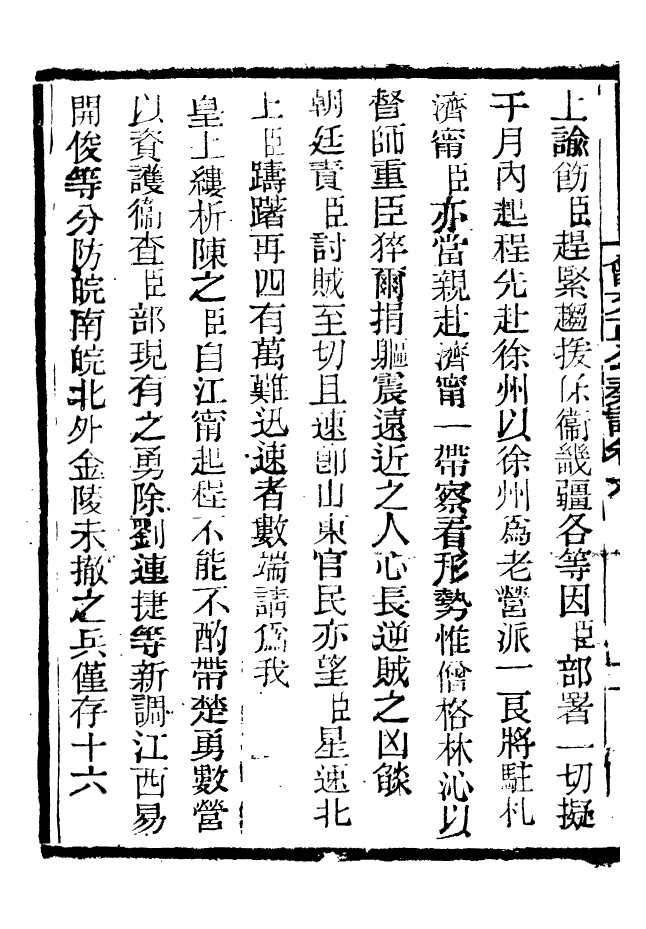 上諭飭臣趕緊趨援保衞畿疆各等因臣部署一切擬
于月內起程先赴徐州以徐州爲老營派一良將駐札
濟甯臣亦當親赴濟甯一帶察看形勢惟僧格林沁以
督師重臣猝爾捐軀震遠近之人心長逆賊之凶燄
朝廷責臣討賊至切且速卽山東官民亦望臣星速北
上臣躊躇再四有萬難迅速者數端請爲我
皇上縷析陳之臣自江甯起程不能不酌帶楚勇數營
以資護衞查臣部現有之勇除劉連捷等新調江西易
開俊等分防皖南皖北外金陵未撤之兵僅存十六